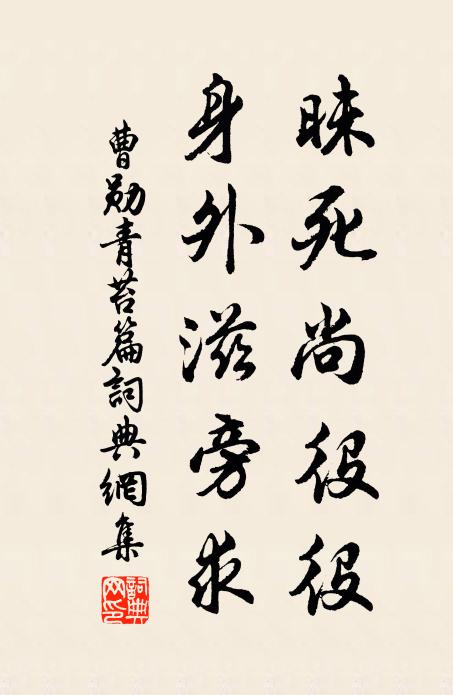 昧死尚役役
身外滋旁求
曹勛青苔篇詞典網集
詞典网印